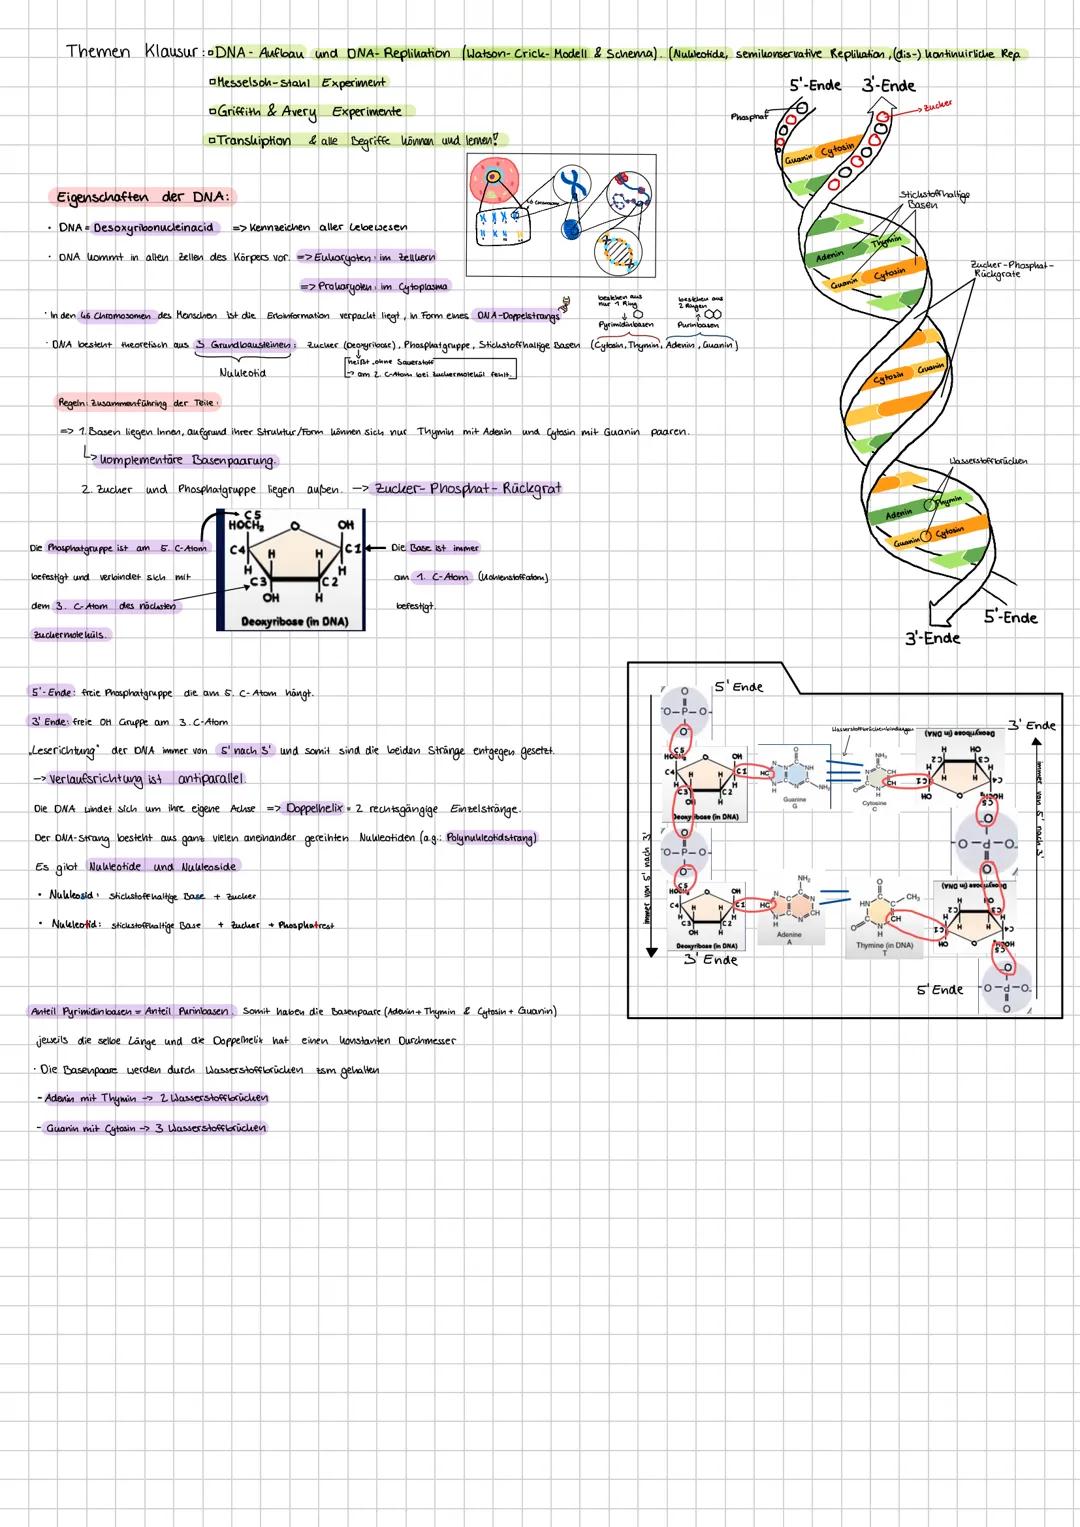 Themen Klausur: DNA - Aufbau und DNA-Replikation (Watson-Crick-Modell & Schema). (Nukleotide, semikonservative Replikation, (dis-) kontinuirliche Rep
Messelson-Stahl Experiment
Griffith & Avery Experimente
Transkiption & alle Begriffe können und lernen!
5'-Ende 3'-Ende
Phosphat
Zucker
Guanin Cytosin
Stickstoffhaltige Basen
Adenin Thymin
Guanin Cytosin
Zucker-Phosphat-Rückgrate
Cytosin Guanin
Wasserstoffbrücken
Adenin Thymin
Guanin Cytosin
5'-Ende
3'-Ende
Eigenschaften der DNA:
• DNA = Desoxyribonucleinacid => Kennzeichen aller Lebewesen
46 Chromosomen
• DNA kommt in allen Zellen des Körpers vor. => Eukaryoten: im Zellkern
=> Prokaryoten: im Cytoplasma
• In den 46 Chromosomen des Menschen ist die Erbinformation verpackt liegt, in Form eines DNA-Doppelstrangs
bestehen aus nur 1 Ring
bestehen aus 2 Ringen
Pyrimidinbasen Purinbasen
• DNA besteht theoretisch aus 3 Grundbausteinen: Zucker (Deoxyribose), Phosphatgruppe, Stickstoffhaltige Basen (Cytosin, Thymin, Adenin, Guanin)
Nukleotid
heißt „ohne Sauerstoff"
-> am 2. C-Atom bei Zuckermolekül fehlt.
Regeln: Zusammenführing der Teile:
=> 1. Basen liegen Innen, aufgrund ihrer Struktur/Form können sich nur Thymin mit Adenin und Cytosin mit Guanin paaren.
komplementäre Basenpaarung.
2. Zucker und Phosphatgruppe liegen außen. -> Zucker-Phosphat-Rückgrat
Die Phosphatgruppe ist am 5. C-Atom
befestigt und verbindet sich mit
dem 3. C-Atom des nächsten
Zuckermoleküls.
C5
HOCH2 O OH
C4 H H C1
H C3 C2 H
OH H
Deoxyribose (in DNA)
Die Base ist immer
am 1. C-Atom (Kohlenstoffatom)
befestigt.
5'-Ende: freie Phosphatgruppe die am 5. C-Atom hängt.
3' Ende: freie OH Gruppe am 3. C-Atom
„Leserichtung" der DNA immer von 5' nach 3' und somit sind die beiden Stränge entgegen gesetzt.
-> Verlaufsrichtung ist antiparallel.
Die DNA windet sich um ihre eigene Achse => Doppelhelix = 2 rechtsgängige Einzelstränge.
Der DNA-Strang besteht aus ganz vielen aneinander gereihten Nukleotiden (a.g.: Polynukleotidstrang)
Es gibt Nukleotide und Nukleoside
• Nukleosid: stickstoffhaltige Base + Zucker
• Nukleotid: stickstoffhaltige Base + Zucker + Phosphatrest
5' Ende
Wasserstoffbrückenbindungen
3' Ende
immer von 5' nach 3'
Guanine
G
Cytosine
C
Deoxyribose (in DNA)
Deoxyribose (in DNA)
immer von 5' nach 3'
Adenine
A
Thymine (in DNA)
T
Deoxyribose (in DNA)
Deoxyribose (in DNA)
3' Ende
5' Ende
Anteil Pyrimidinbasen = Anteil Purinbasen. Somit haben die Basenpaare (Adenin+Thymin & Cytosin+Guanin)
jeweils die selbe Länge und die Doppelhelix hat einen konstanten Durchmesser
• Die Basenpaare werden durch Wasserstoffbrücken zsm gehalten
- Adenin mit Thymin -> 2 Wasserstoffbrücken
- Guanin mit Cytosin -> 3 Wasserstoffbrücken